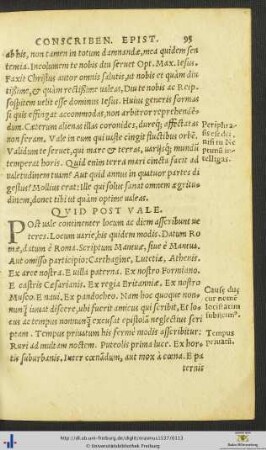 CONSCRIBEN. EPIST. 95
ab his, non tamen in totum damnandæ, mea quidem sen
tentia. Incolumem te nobis diu servet Opt. Max. Iesus.
Faxit Christus autor omnis salutis, ut nobis et quàm diu
tißime, & quàm rectißime valeas, Diu te nobis ac Reip.
sospitem velit esse dominus Iesus. Huius generis formas
si quis effingat accommodas, non arbitror reprehendẽ-
dum. Cæterum alienas illas coronides, dureq; affectatas
non feram. Vale in eum qui iuste cingit fluctibus orbẽ.
Valitudinem te servet, qui mare & terras, varijsq; mundũ
temperat horis. Quid enim terra mari cinctu facit ad
valetudinem tuam? Aut quid annus in quatuor partes di
gestus? Mollius erat: Ille qui solus sanat omnem ægritu-
dinem, donet tibi ut quàm optime valeas.
Periphra-
sis
intelligas.
QVID POST VALE.
POst vale continenter locum ac diem ascribunt ue
teres. Locum varie, his quidem modis. Datum Ro
mæ, datum è Roma. Scriptum Mantuæ, sive è Mantua.
Aut omisso participio; Carthagine, Lucetiæ, Athenis.
Ex arce nostra. E villa paterna. Ex nostro Formiano.
E castris Cæsarianis. Ex regia Britanniæ. Ex nostro
Museo. E navi, Ex pandocheo. Nam hoc quoque non-
nunq̃ iuvat dicere, ubi fuerit amicus qui scribit, Et lo-
cus ac tempus nonnunq̃ excusat epistolã neglectius scri
ptam. Tempus privatum his fermè modis ascribitur:
Ruri ad multam noctem. Puteolis prima luce. Ex hor-
tis suburbanis. Inter cœnãdum, aut mox à cœna. E pa
ternis
Causæ
locũ
subijciunt.
Tempus
privatũ.
http://dl.ub.uni-freiburg.de/diglit/erasmus1527/0113
© Universitätsbibliothek Freiburg
Baden-Württemberg